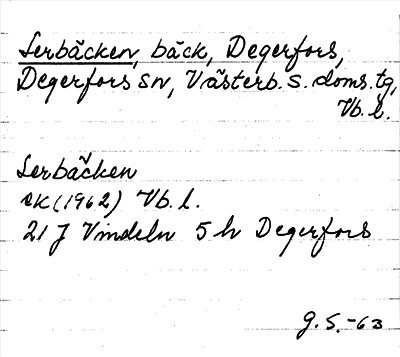 Lerbäcken, bäck, Degerfors,
Degerfors sn, Västerb. s. doms. tg,
Vb. l.
Lerbäcken
ek (1962) Vb. l.
21 J Vindeln 5 h Degerfors
G. S. -63